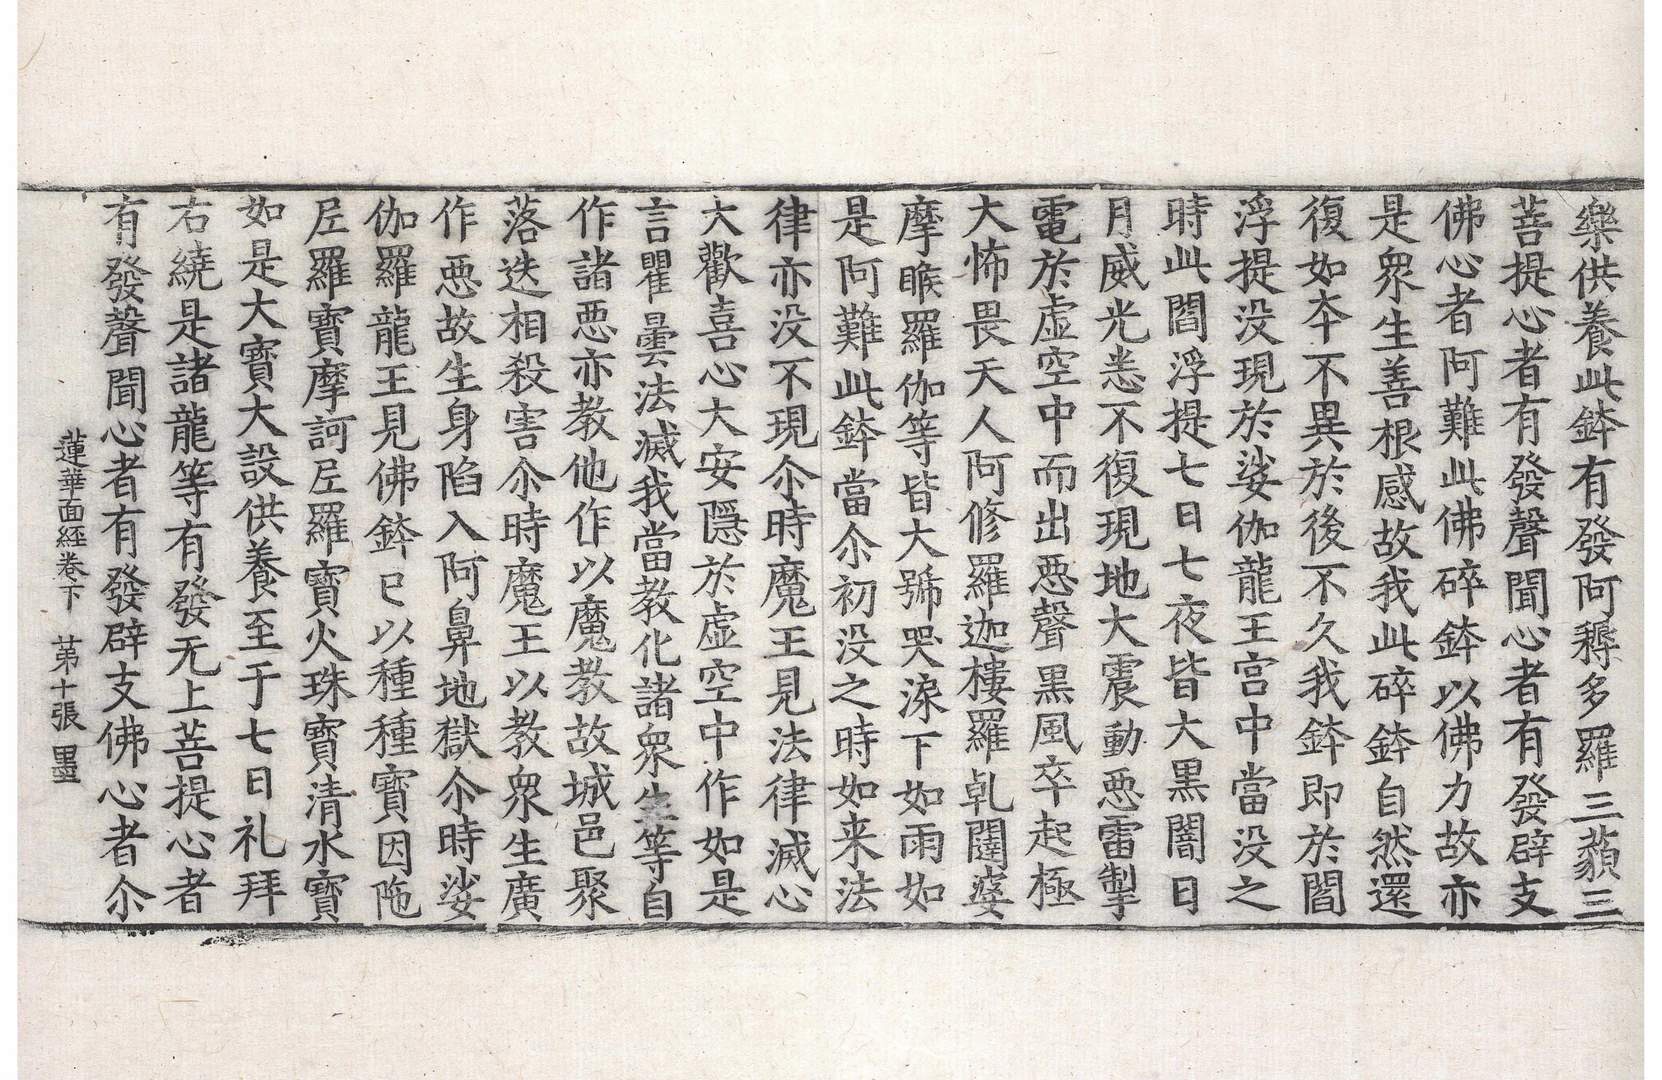 樂供養此鉢有發阿耨多羅三藐三
菩提心者有發聲聞心者有發辟支
佛心者阿難此佛碎鉢以佛力故亦
是衆生善根感故我此碎鉢自然還
復如本不異於後不久我鉢即於閻
浮提没現於娑伽龍王宫中當没之
時此閻浮提七日七夜皆大黒闇日
月威光悉不復現地大震動惡雷掣
電於虚空中而出惡聲黒風卒起極
大怖畏天人阿修羅迦樓羅乹闥婆
摩睺羅伽等皆大號哭淚下如雨如
是阿難此鉢當尒初没之時如来法
律亦没不現尒時魔王見法律滅心
大歡喜心大安隱於虚空中作如是
言瞿曇法滅我當教化諸衆生等自
作諸惡亦教他作以魔教故城邑聚
落迭相殺害尒時魔王以教衆生廣
作惡故生身陷入阿鼻地獄尒時娑
伽羅龍王見佛鉢已以種種寶因陁
尼羅寶摩訶尼羅寶火珠寶清水寶
如是大寶大設供養至于七日礼拜
右繞是諸龍等有發无上菩提心者
有發聲聞心者有發辟支佛心者尒
蓮華面經卷下　苐十張　墨